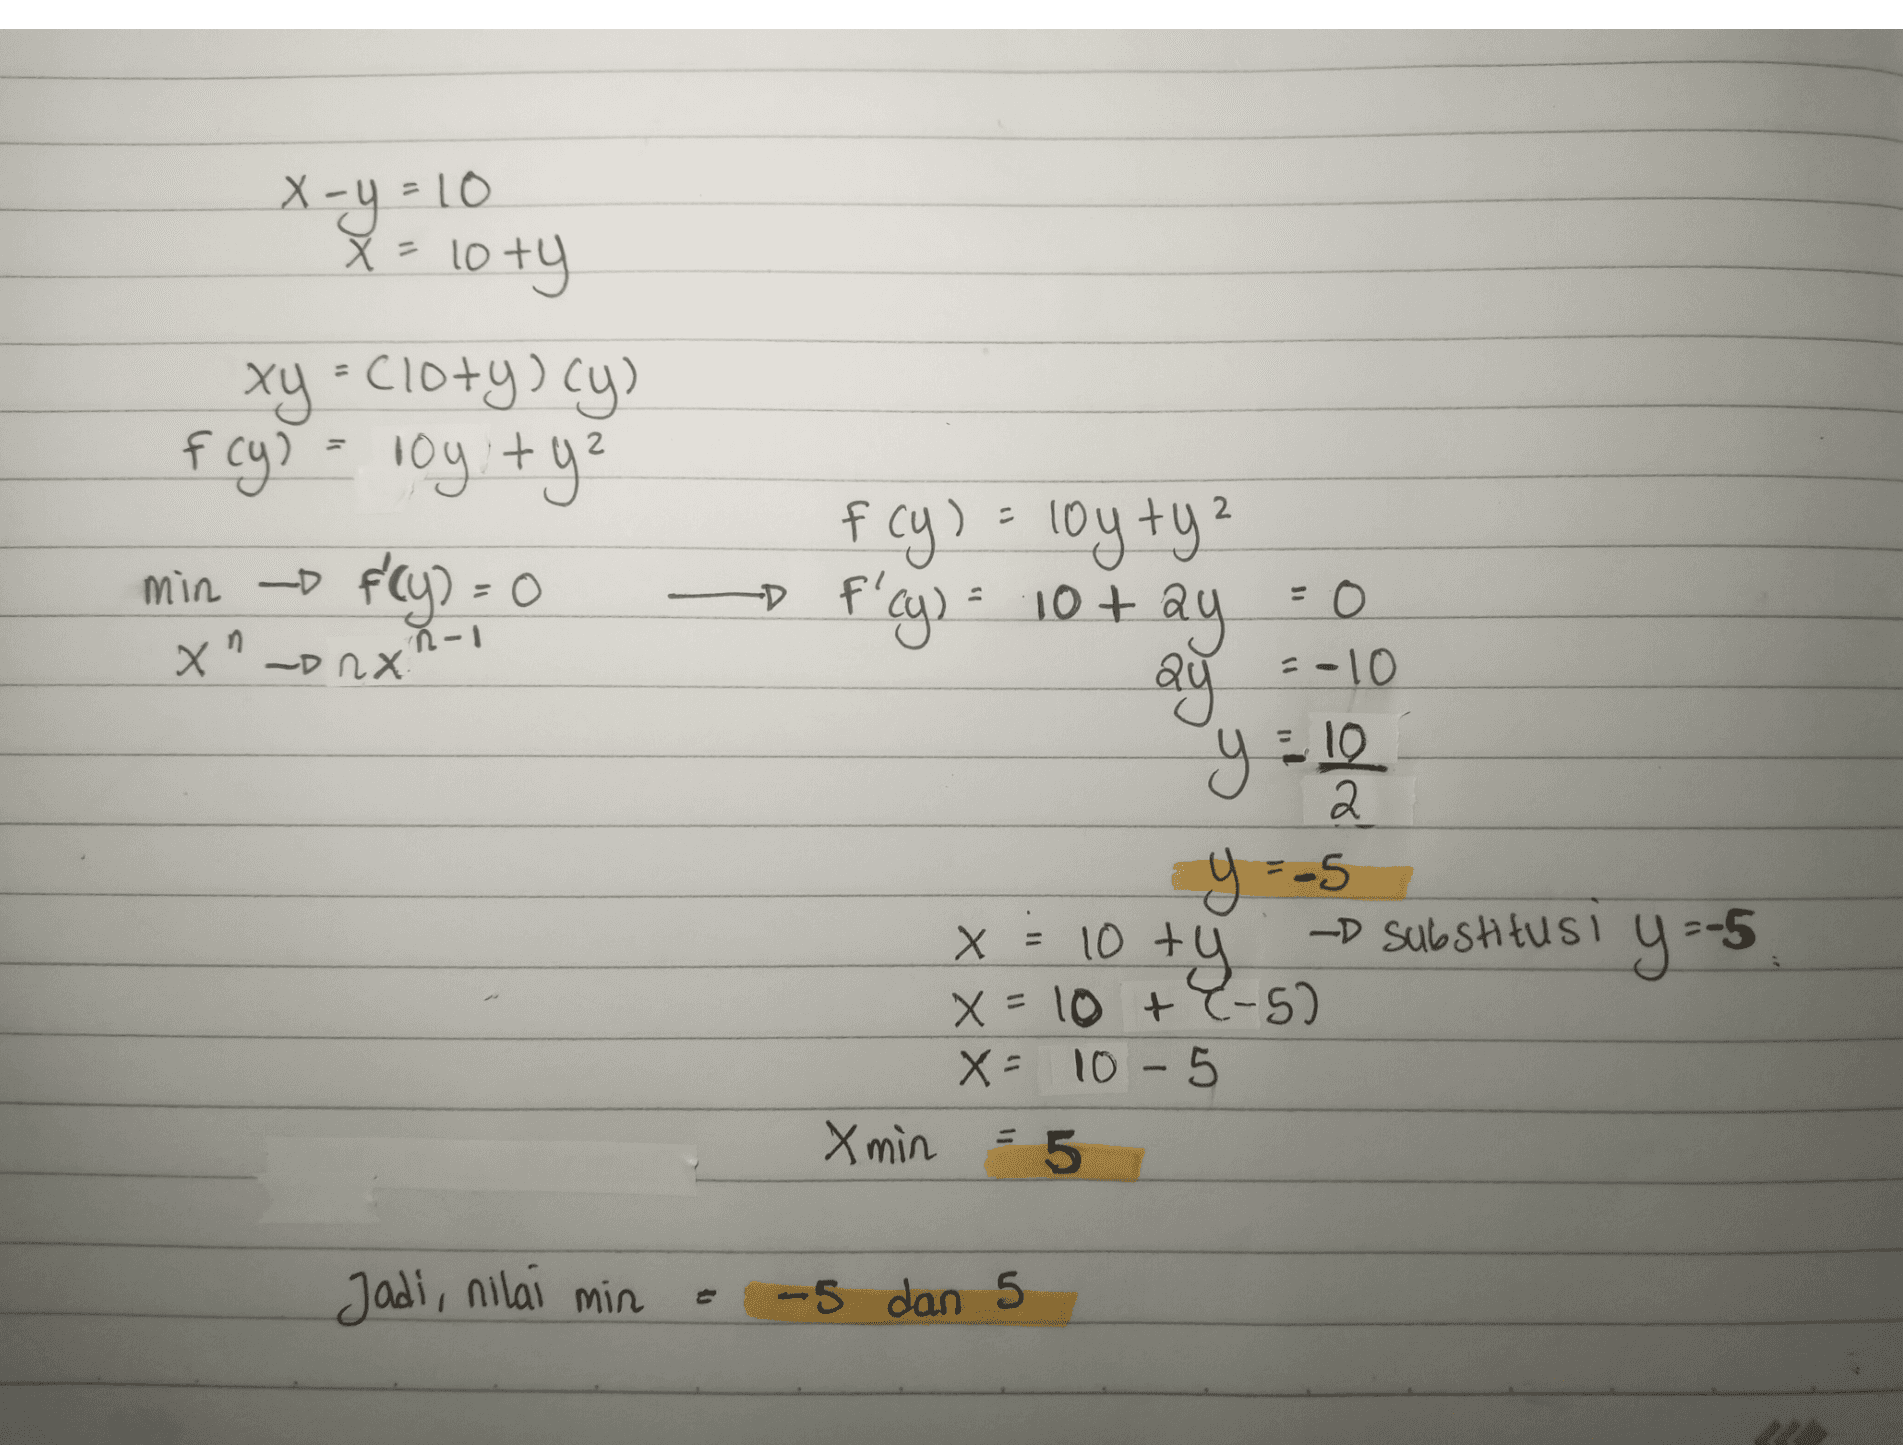 x - y = 10
x = 10 + y
xy = (10+y) (y)
f(y) = 10y + y²
min → f'(y) = 0
xⁿ → nxⁿ⁻¹
→ f(y) = 10y + y²
f'(y) = 10 + 2y = 0
2y = -10
y = -10/2
y = -5
x = 10 + y → substitusi y = -5
x = 10 + (-5)
x = 10 - 5
Xmin = 5
Jadi, nilai min = -5 dan 5